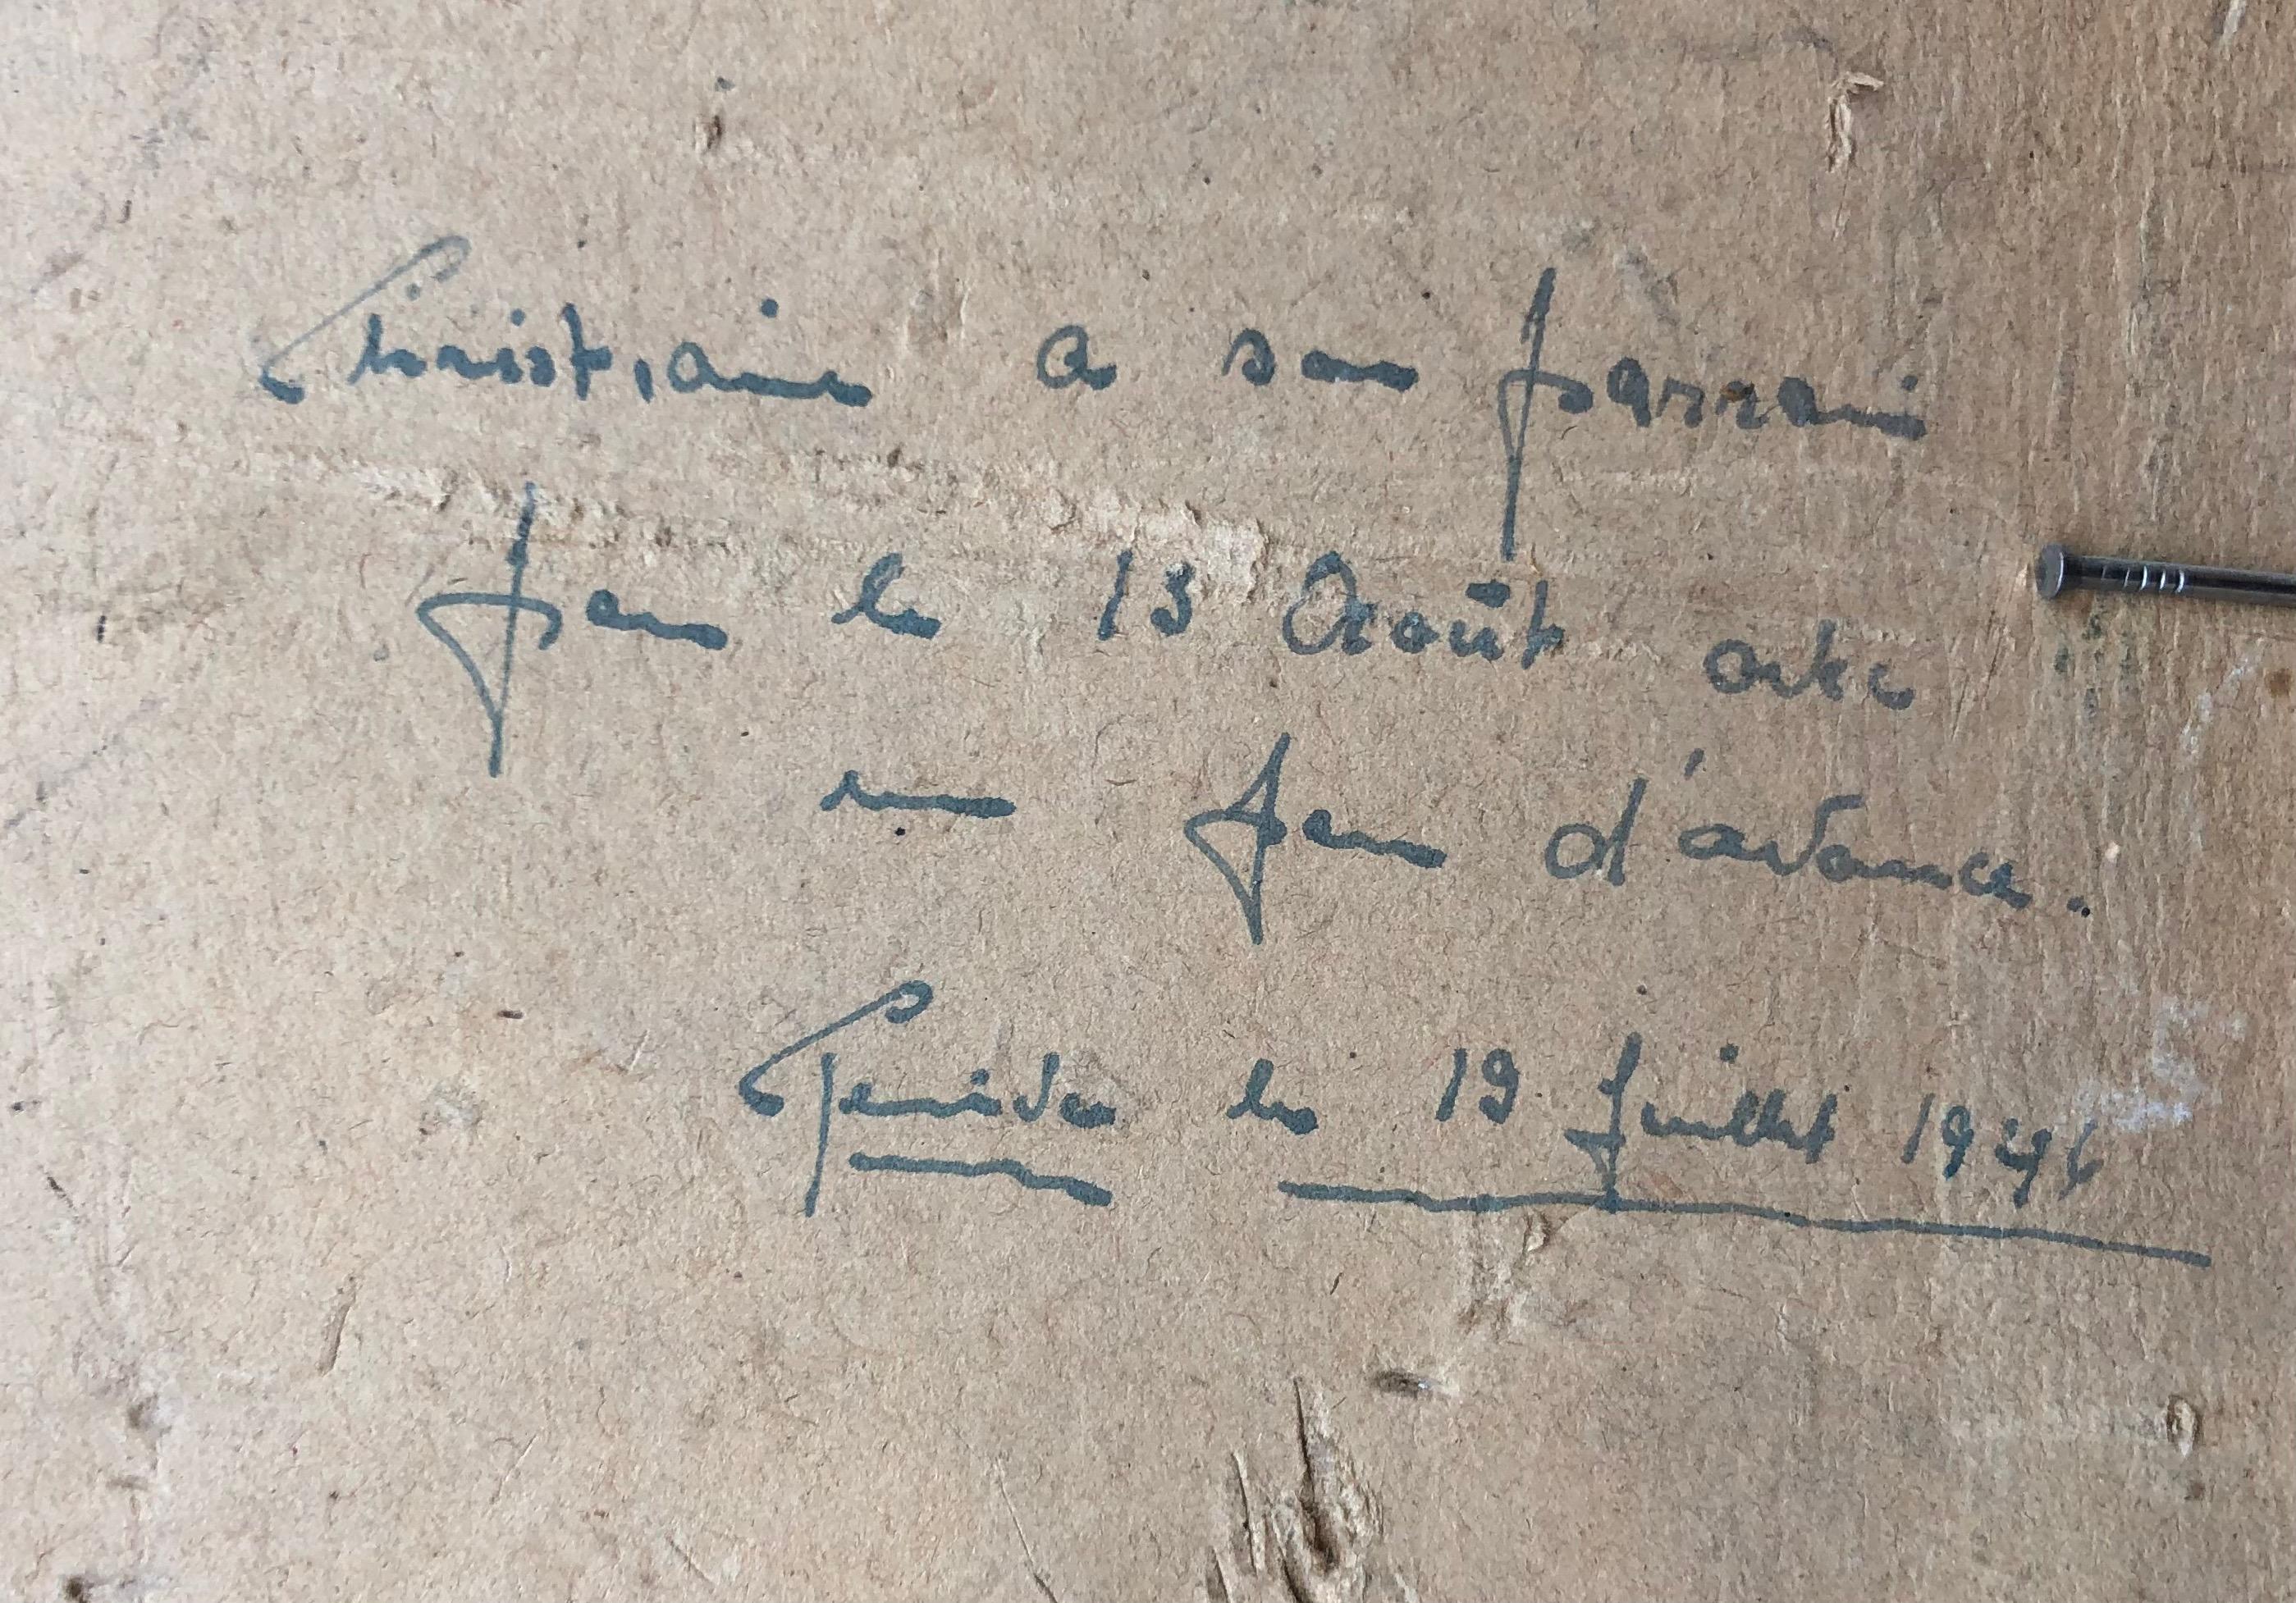 Christiane a son parrain
pour le 13 Août avec
un peu d'avance.
le 19 Juillet 1946